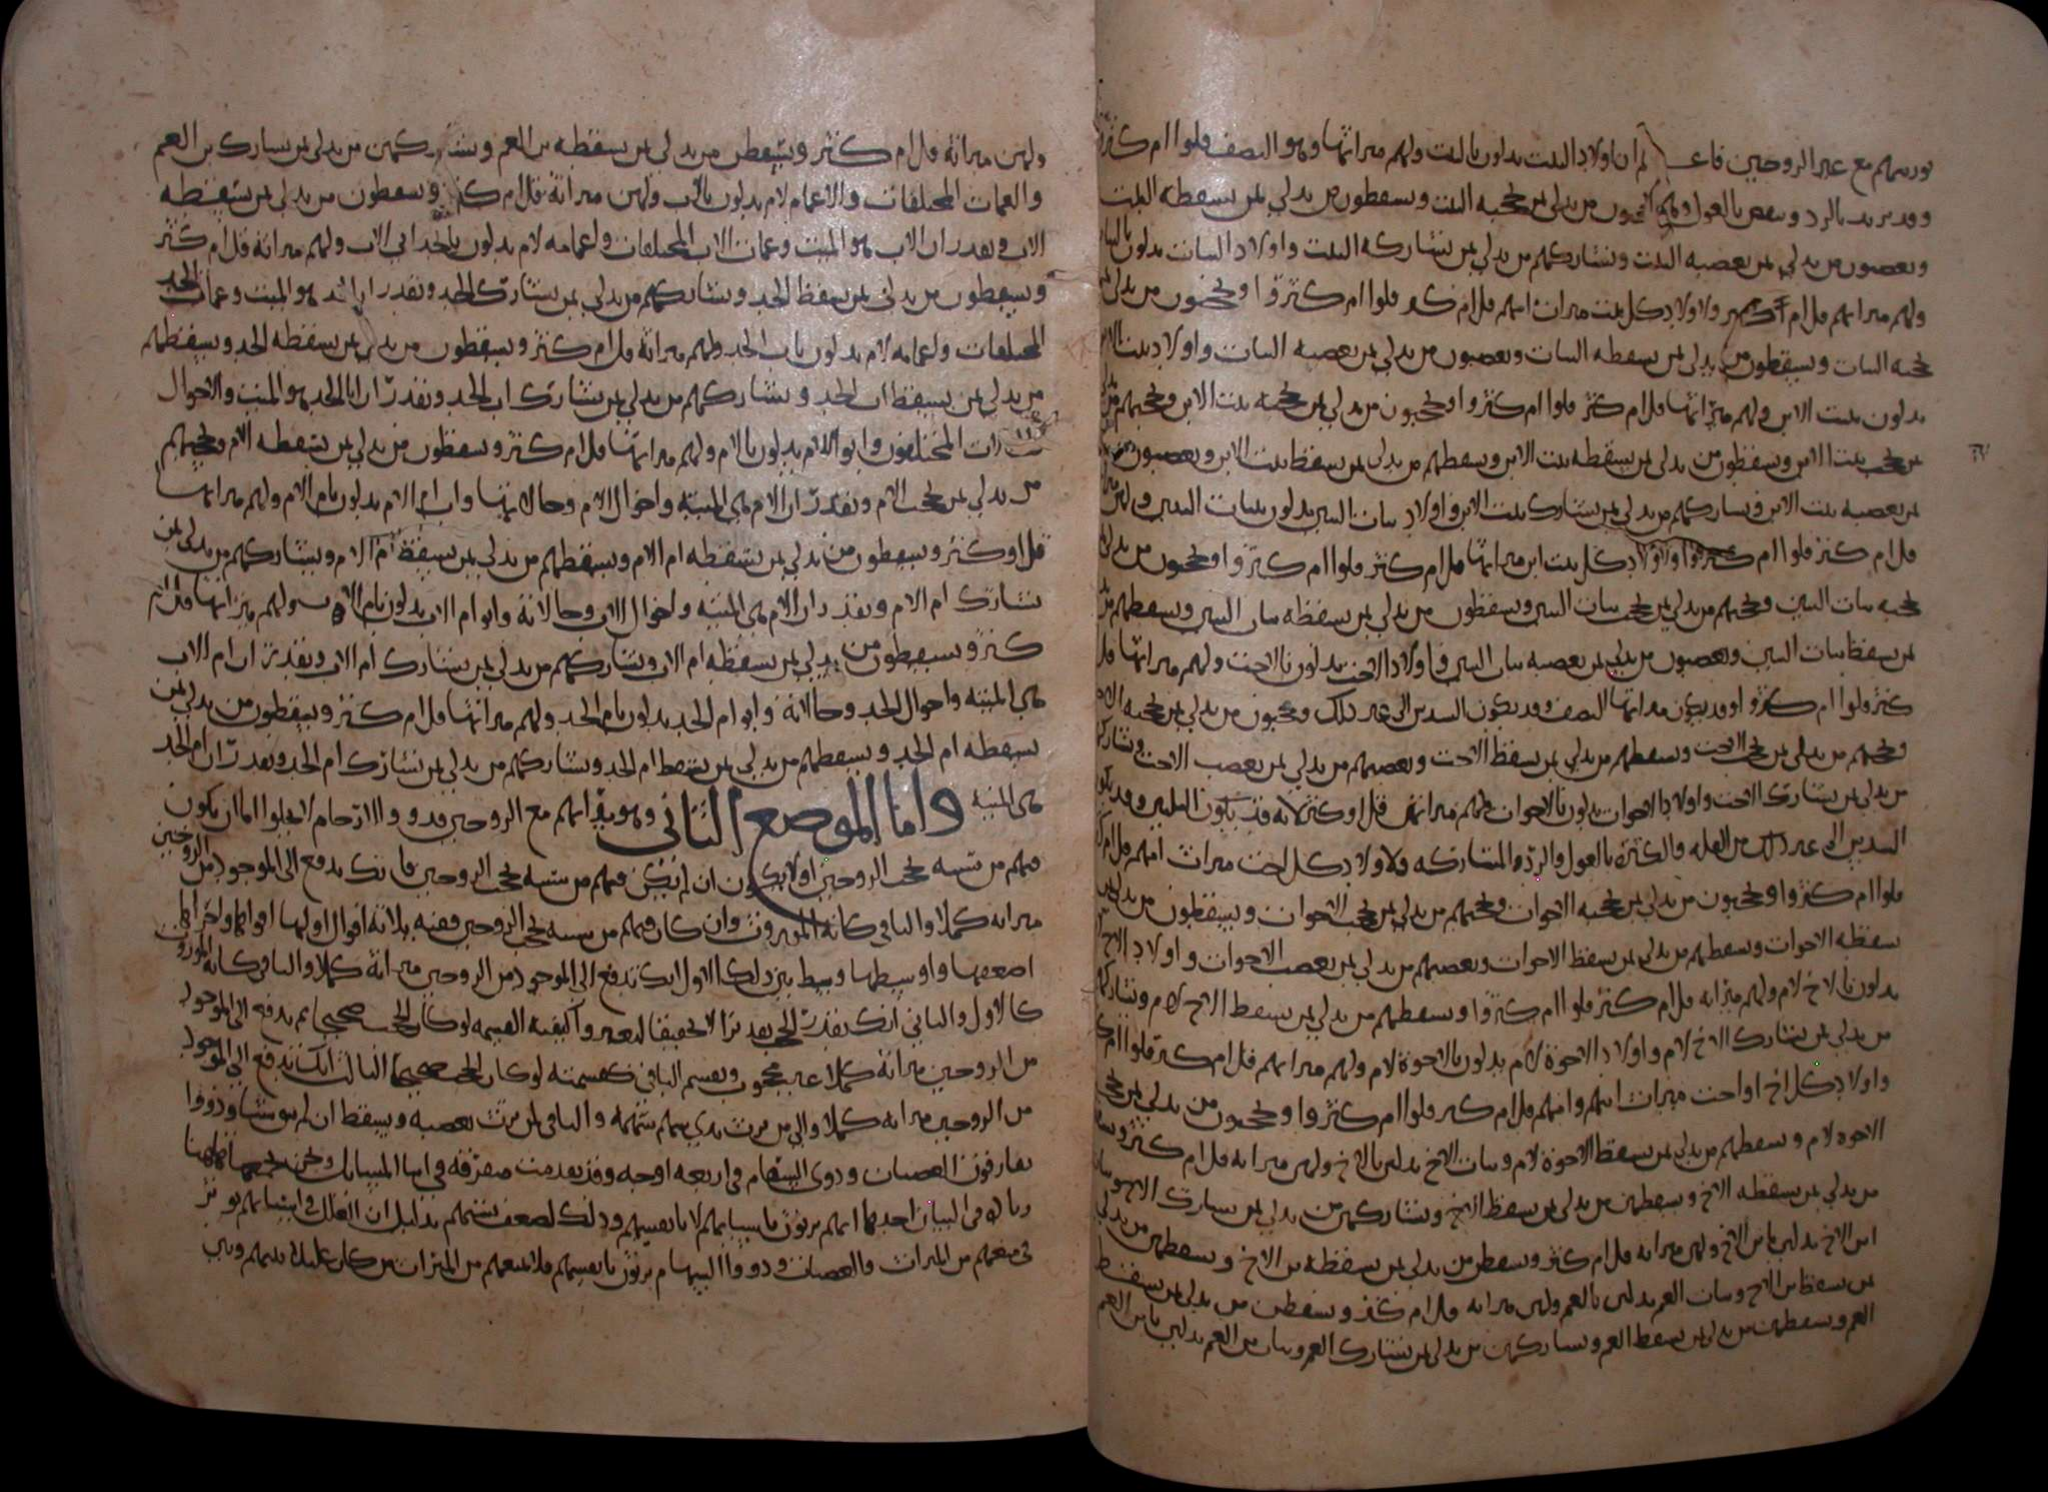 توريثهم مع غير الزوجين فاعلم ان اولاد البنت يدلون بالبنت ولهم ميراثها وهو النصف قلوا ام كثروا
وقد يزيد بالرد وينقص بالعول ويحجبون من يدلي بمن تحجبه البنت ويسقطون من يدلي بمن يسقطه البنت
ويعصبون من يدلي بمن تعصبه البنت ويشاركهم من يدلي بمن تشاركه البنت واولاد البنات يدلون بالبنات
ولهم ميراثهم قل ام كثر ولاولاد كل بنت ميراث امهم قل ام كثر قلوا ام كثروا ويحجبون من يدلي بمن
تحجبه البنات ويسقطون من يدلي بمن يسقطه البنات ويعصبون من يدلي بمن تعصبه البنات واولاد بنت الابن
يدلون ببنت الابن ولهم ميراثها قل ام كثر قلوا ام كثروا ويحجبون من يدلي بمن تحجبه بنت الابن ويحجبهم من يدلي
بمن يحجب بنت الابن ويسقطون من يدلي بمن يسقطه بنت الابن ويسقطهم من يدلي بمن يسقط بنت الابن ويعصبون
بمن تعصبه بنت الابن ويشاركهم من يدلي بمن يشارك بنت الابن واولاد بنات البنين يدلون ببنات البنين ولهم
قل ام كثر قلوا ام كثروا ولاولاد كل بنت ابن ميراثها قل ام كثر قلوا ام كثروا ويحجبون من يدلي بمن
تحجبه بنات البنين ويحجبهم من يدلي بمن يحجب بنات البنين ويسقطون من يدلي بمن يسقطه بنات البنين ويسقطهم من
بمن يسقط بنات البنين ويعصبون من يدلي بمن تعصبه بنات البنين واولاد الاخت يدلون بالاخت ولهم ميراثها قل
كثر قلوا ام كثروا وقد يكون ميراثها النصف وقد يكون السدس الى غير ذلك ويحجبون من يدلي بمن تحجبه الاخت
ويحجبهم من يدلي بمن يحجب الاخت ويسقطهم من يدلي بمن يسقط الاخت ويعصبهم من يدلي بمن يعصب الاخت ويشاركهم
من يدلي بمن يشارك الاخت واولاد الاخوات يدلون بالاخوات فلهم ميراثهن قل او كثر لانه قد يكون الثلثين وقد يكون
السدس الى غير ذلك من القلة والكثرة بالعول والرد والمشاركة ولاولاد كل اخت ميراث امهم قل ام كثر
قلوا ام كثروا ويحجبون من يدلي بمن تحجبه الاخوات ويحجبهم من يدلي بمن يحجب الاخوات ويسقطون من يدلي بمن
يسقطه الاخوات ويسقطهم من يدلي بمن يسقط الاخوات ويعصبهم من يدلي بمن يعصب الاخوات واولاد الاخ
يدلون بالاخ لام ولهم ميراثه قل ام كثر قلوا ام كثروا ويسقطهم من يدلي بمن يسقط الاخ لام ويشاركهم
من يدلي بمن يشارك الاخ لام واولاد الاخوة لام يدلون بالاخوة لام ولهم ميراثهم قل ام كثر قلوا ام كثروا
واولاد كل اخ او اخت ميراث ابيهم وامهم قل ام كثر قلوا ام كثروا ويحجبون من يدلي بمن يحجب
الاخوة لام ويسقطهم من يدلي بمن يسقط الاخوة لام وبنات الاخ يدلين بالاخ ولهن ميراثه قل ام كثر
من يدلي بمن يسقطه الاخ ويسقطهن من يدلي بمن يسقط الاخ ويشاركهن من يدلي بمن يشارك الاخ وبنات
ابن الاخ يدلين بابن الاخ ولهن ميراثه قل ام كثر ويسقطن من يدلي بمن يسقطه بن الاخ ويسقطهن من يدلي
بمن يسقط بن الاخ وبنات العم يدلين بالعم ولهن ميراثه قل ام كثر ويسقطن من يدلي بمن يسقطه
العم ويسقطهن من يدلي بمن يسقط العم ويشاركهن من يدلي بمن يشارك العم وبنات بن العم يدلين بابن العم
ولهن ميراثه قل ام كثر ويسقطن من يدلي بمن يسقطه بن العم ويشاركهن من يدلي بمن يشارك بن العم
والعمات المختلفات والاعمام لام يدلون بالاب ولهن ميراثه قل ام كثر ويسقطون من يدلي بمن يسقطه
الاب ويقدر ان الاب هو الميت وعمات الاب المختلفات واعمامه لام يدلون بالجد ابي الاب ولهم ميراثه قل ام كثر
ويسقطون من يدلي بمن يسقط الجد ويشاركهم من يدلي بمن يشارك الجد ويقدر ان الجد هو الميت وعمات الجد
المختلفات واعمامه لام يدلون باب الجد ولهم ميراثه قل ام كثر ويسقطون من يدلي بمن يسقطه الجد ويسقطهم
من يدلي بمن يسقط اب الجد ويشاركهم من يدلي بمن يشارك اب الجد ويقدر ان ابا الجد هو الميت والاخوال
المختلفون وابو الام يدلون بالام ولهم ميراثها قل ام كثر ويسقطون من يدلي بمن يسقطه الام ويحجبهم
من يدلي بمن يحجب الام ويقدر ان الام هي الميتة واخوال الام وخالاتها واب ام الام يدلون بام الام ولهم ميراثها
قل او كثر ويسقطون من يدلي بمن يسقطه ام الام ويسقطهم من يدلي بمن يسقط ام الام ويشاركهم من يدلي بمن
يشارك ام الام ويقدر ان ام الام هي الميتة واخوال الاب وخالاته وابو ام الاب يدلون بام الاب ولهم ميراثها قل ام
كثر ويسقطون من يدلي بمن يسقطه ام الاب ويشاركهم من يدلي بمن يشارك ام الاب ويقدر ان ام الاب
هي الميتة واخوال الجد وخالاته وابو ام الجد يدلون بام الجد ولهم ميراثها قل ام كثر ويسقطون من يدلي بمن
يسقطه ام الجد ويسقطهم من يدلي بمن يسقط ام الجد ويشاركهم من يدلي بمن يشارك ام الجد ويقدر ان ام الجد
هي الميتة واما الموضع الثاني وهو توريثهم مع الزوجين فذووا الارحام لا يخلوا اما ان يكون
فيهم من سببه يحجب الزوجين اولا يكون ان لم يكن فيهم من سببه يحجب الزوجين فانك تدفع الى الموجود من الزوجين
ميراثه كملا والباقي كانه الموروث وان كان فيهم من سببه يحجب الزوجين ففيه ثلاثة اقوال اولها اقواها واخرها
اضعفها واوسطها وسط بين ذلك الاول انك تدفع الى الموجود من الزوجين ميراثه كملا والباقي كانه الموروث
كالاول والثاني انك تقدر الحجب تقديرا لا تحقيقا لتعرف كيفية القسمة لو كان الحجب صحيحا ثم تدفع الى الموجود
من الزوجين ميراثه كملا غير محجوب وتقسم الباقي كقسمته لو كان الحجب صحيحا الثالث انك تدفع الى الموجود
من الزوجين ميراثه كملا والى من يرث بذي سهم سهمه والباقي لمن يرث بعصبه ويسقط ان لم يبق شيئا وذووا
يفارقون العصبات وذوي السهام في اربعة اوجه وقد تقدمت متفرقة في اثنا المسائل ونحن نجمعها هاهنا
زيادة في البيان احدها انهم يرثون باسبابهم لا بانفسهم وذلك لضعف سببهم بدليل ان العلل في اسبابهم تؤثر
في منعهم من الميراث والعصبات وذووا السهام يرثون بانفسهم فلا يمنعهم من الميراث من كان عليلا بينهم وبين